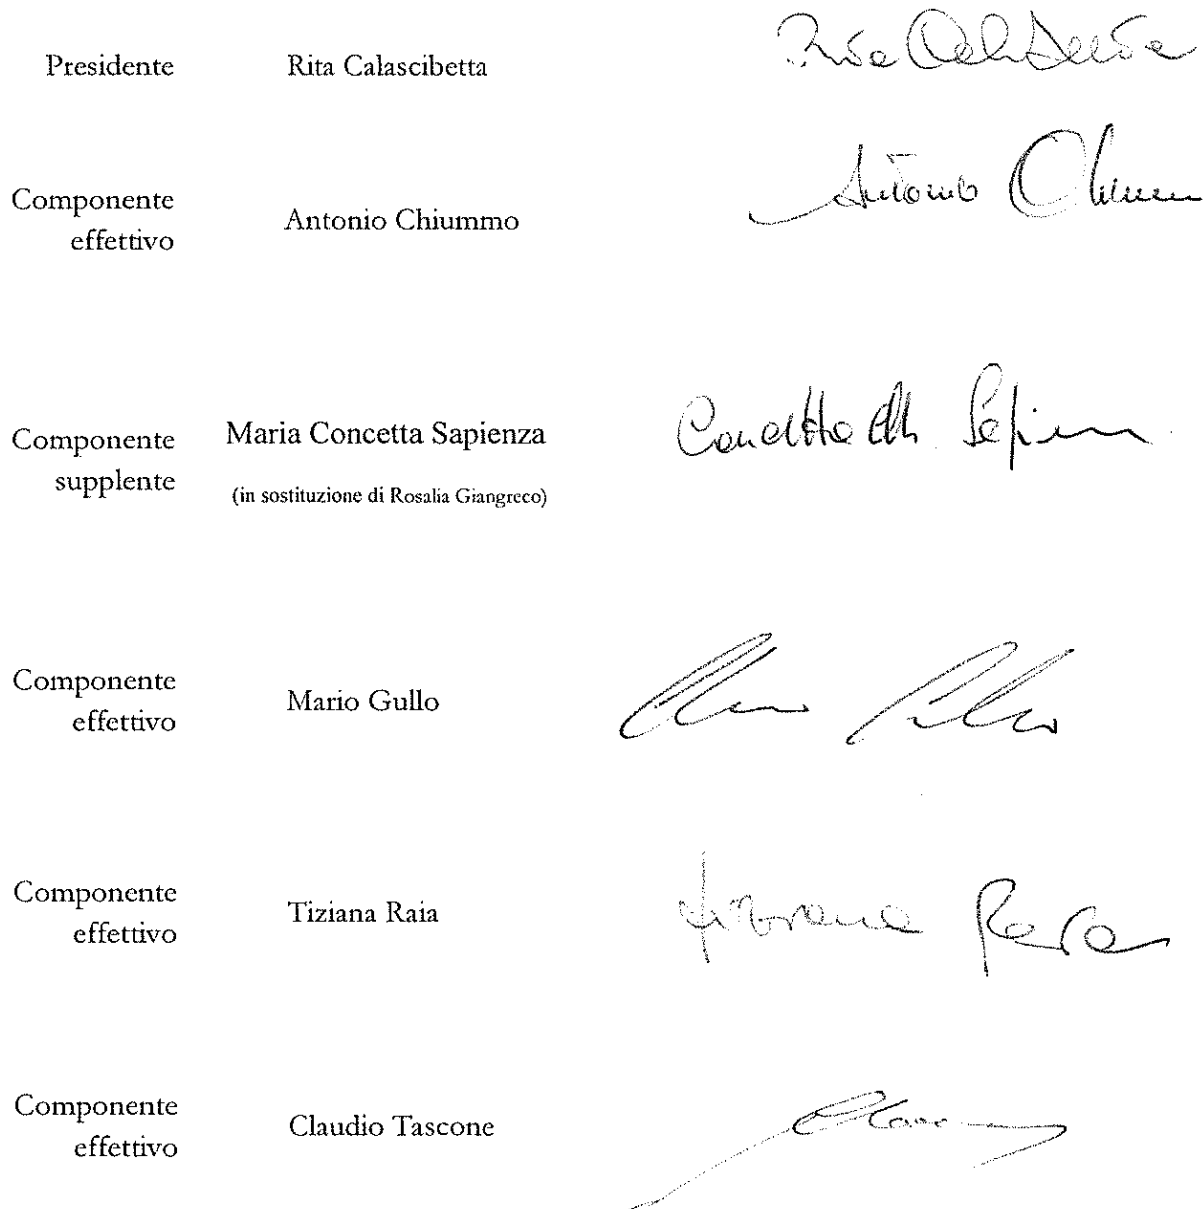 Presidente Rita Calascibetta
Componente
effettivo
Antonio Chiummo
Antonio
Componente
supplente
Maria Concetta Sapienza
(in sostituzione di Rosalia Giangreco)
Componente
effettivo
Mario Gullo
Componente
effettivo
Tiziana Raia
Componente
effettivo
Claudio Tascone